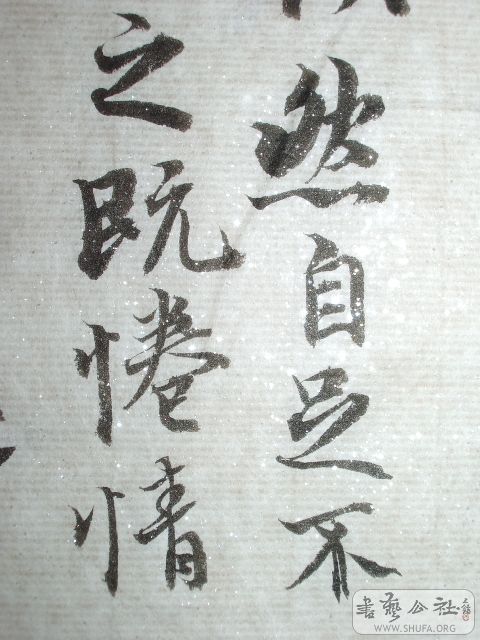 然自足不
之既惓情
書藝公社
WWW.SHUFA.ORG